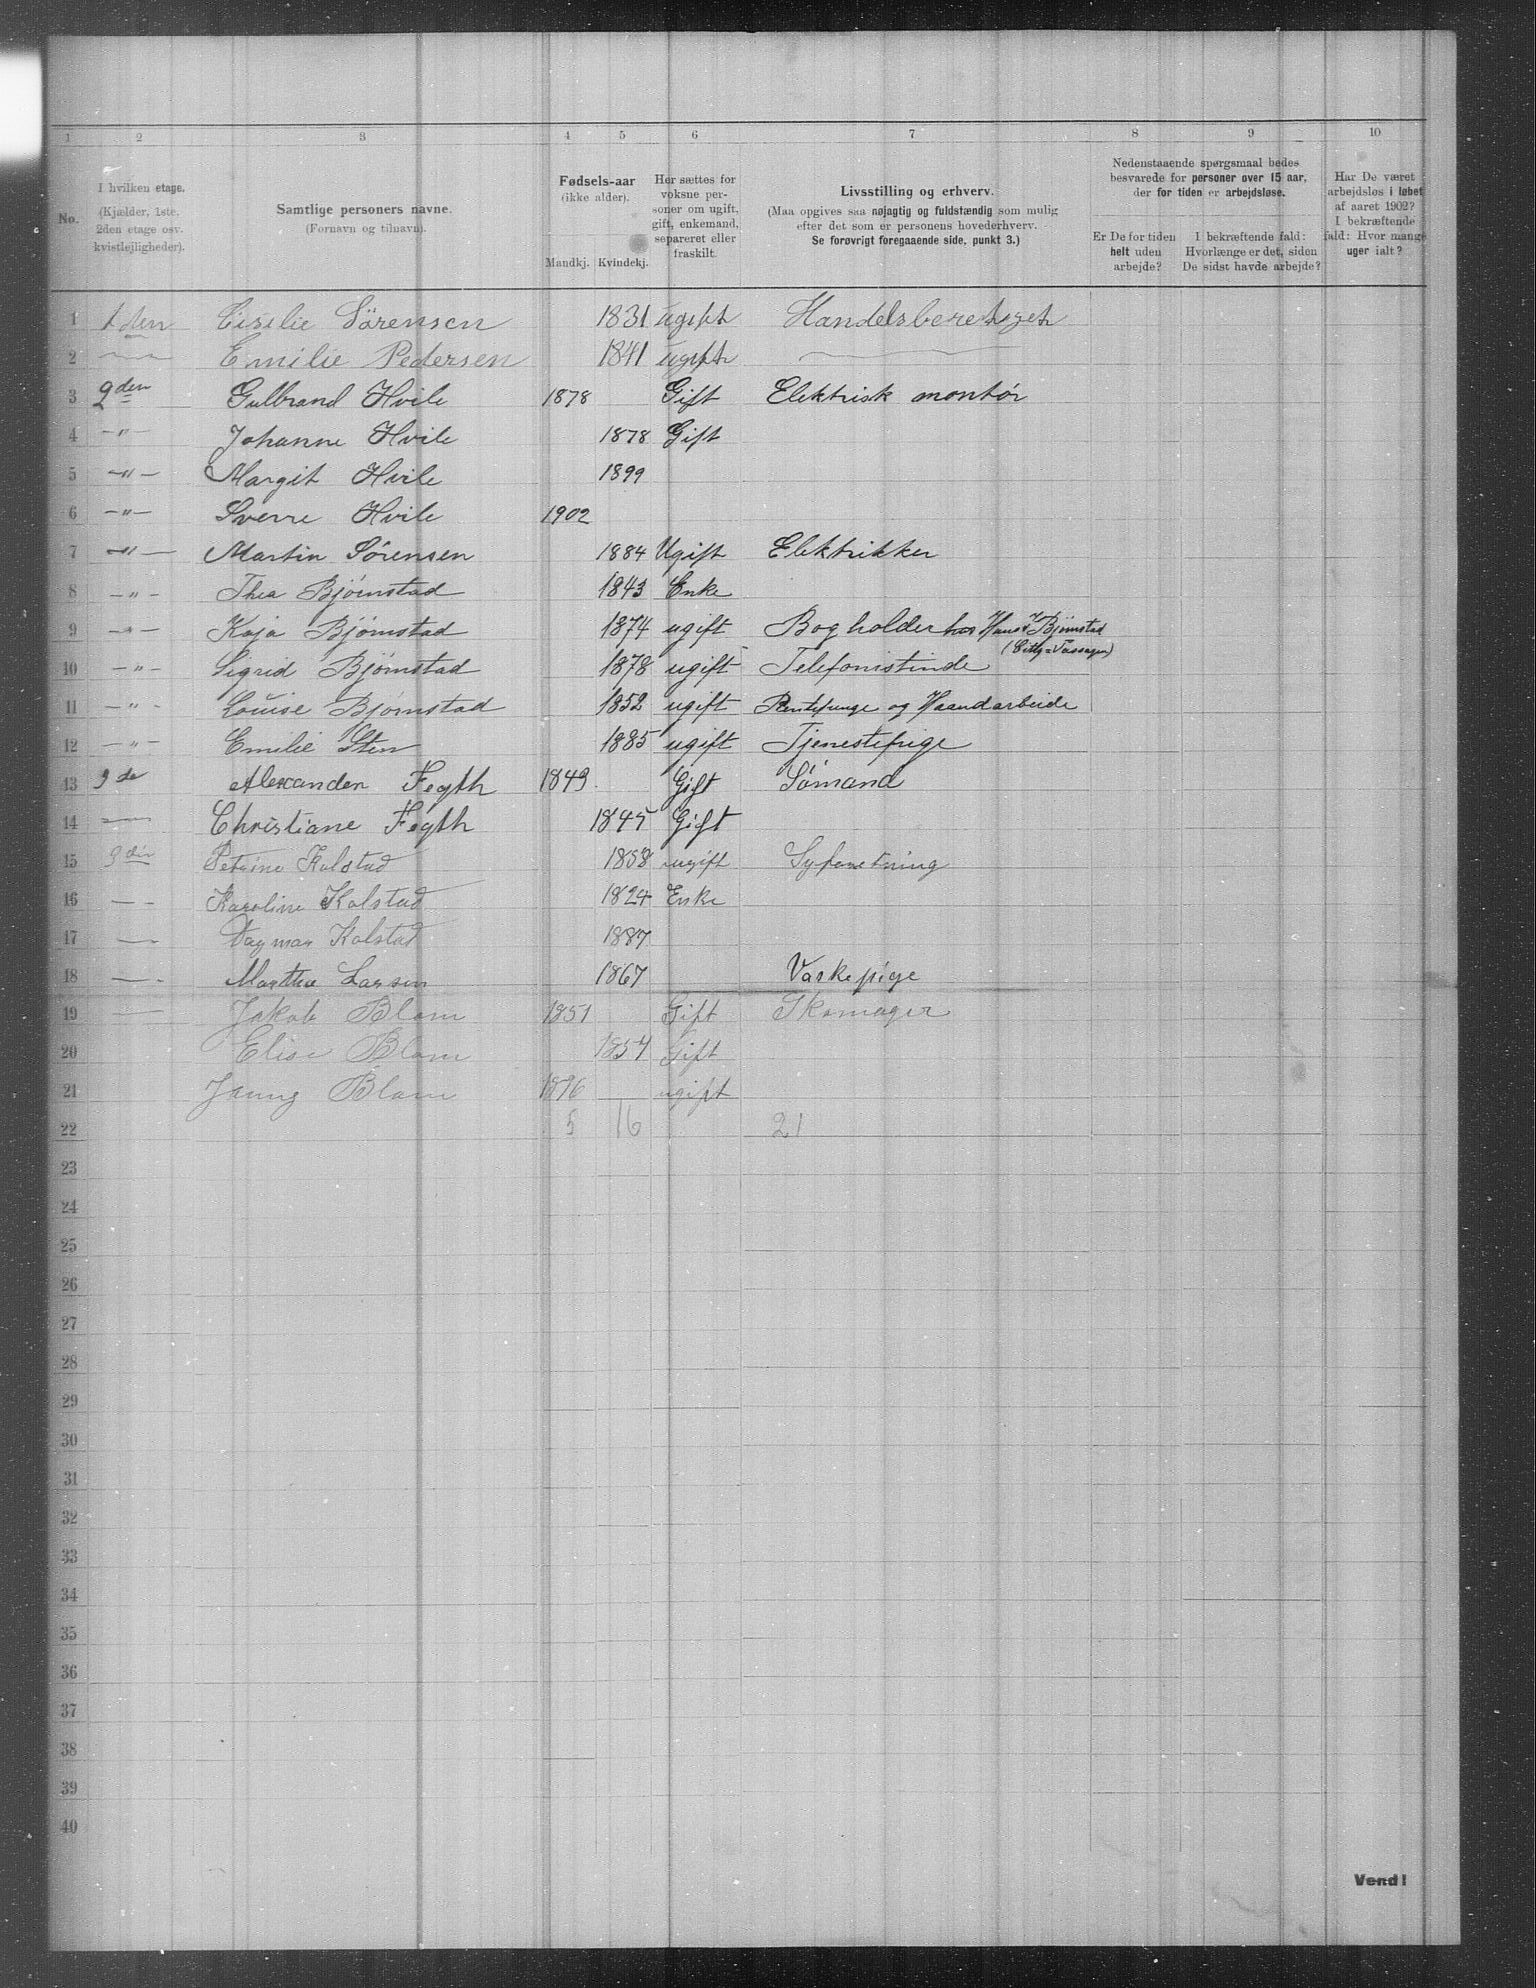 1 2 3 4 5 6 7 8 9 10
No.
I hvilken etage.
(Kjælder, 1ste, 2den etage osv. kvistlejligheder).
Samtlige personers navne.
(Fornavn og tilnavn).
Fødsels-aar
(ikke alder).
Mandkj. Kvindekj.
Her sættes for voksne personer om ugift, gift, enkemand, separeret eller fraskilt.
Livsstilling og erhverv.
(Maa opgives saa nøjagtig og fuldstændig som mulig
efter det som er personens hovederhverv.
Se forøvrigt foregaaende side, punkt 3.)
Nedenstaaende spørgsmaal bedes
besvarede for personer over 15 aar,
der for tiden er arbejdsløse.
Er De for tiden
helt uden
arbejde?
I bekræftende fald:
Hvorlænge er det, siden
De sidst havde arbejde?
Har De været
arbejdsløs i løbet
af aaret 1902?
I bekræftende
fald: Hvor mange
uger ialt?
1 1den Cisilie Sörensen 1831 ugift Handelsberetiget
2 Emilie Pedersen 1841 ugift
3 2den Gulbrand Hvile 1878 Gift Elektrisk montör
4 -"- Johanne Hvile 1878 Gift
5 -"- Margit Hvile 1899
6 -"- Sverre Hvile 1902
7 -"- Martin Sörensen 1884 Ugift Elektrikker
8 -"- Thea Bjørnstad 1843 Enke
9 -"- Kaja Bjørnstad 1874 ugift Bogholder hos Hans Bjørnstad
10 -"- Sigred Bjørnstad 1878 ugift Telefonistinde
11 -"- Louise Bjørnstad 1852 ugift og Haandarbeide
12 -"- Emilie Sten 1885 ugift Tjenestepige
13 3de Alexander Fegth 1849 Gift Sømand
14 Christiane Fegth 1845 Gift
15 3die Petrine Kolstad 1858 ugift Syforretning
16 Karoline Kolstad 1824 Enke
17 Dagmar Kolstad 1887
18 Marthe Larsen 1867 Vaskepige
19 Jakob Blom 1851 Gift Skomager
20 Elise Blom 1854 Gift
21 Blom 1896 ugift
22 5 16 21
23
24
25
26
27
28
29
30
31
32
33
34
35
36
37
38
39
40
Vend!